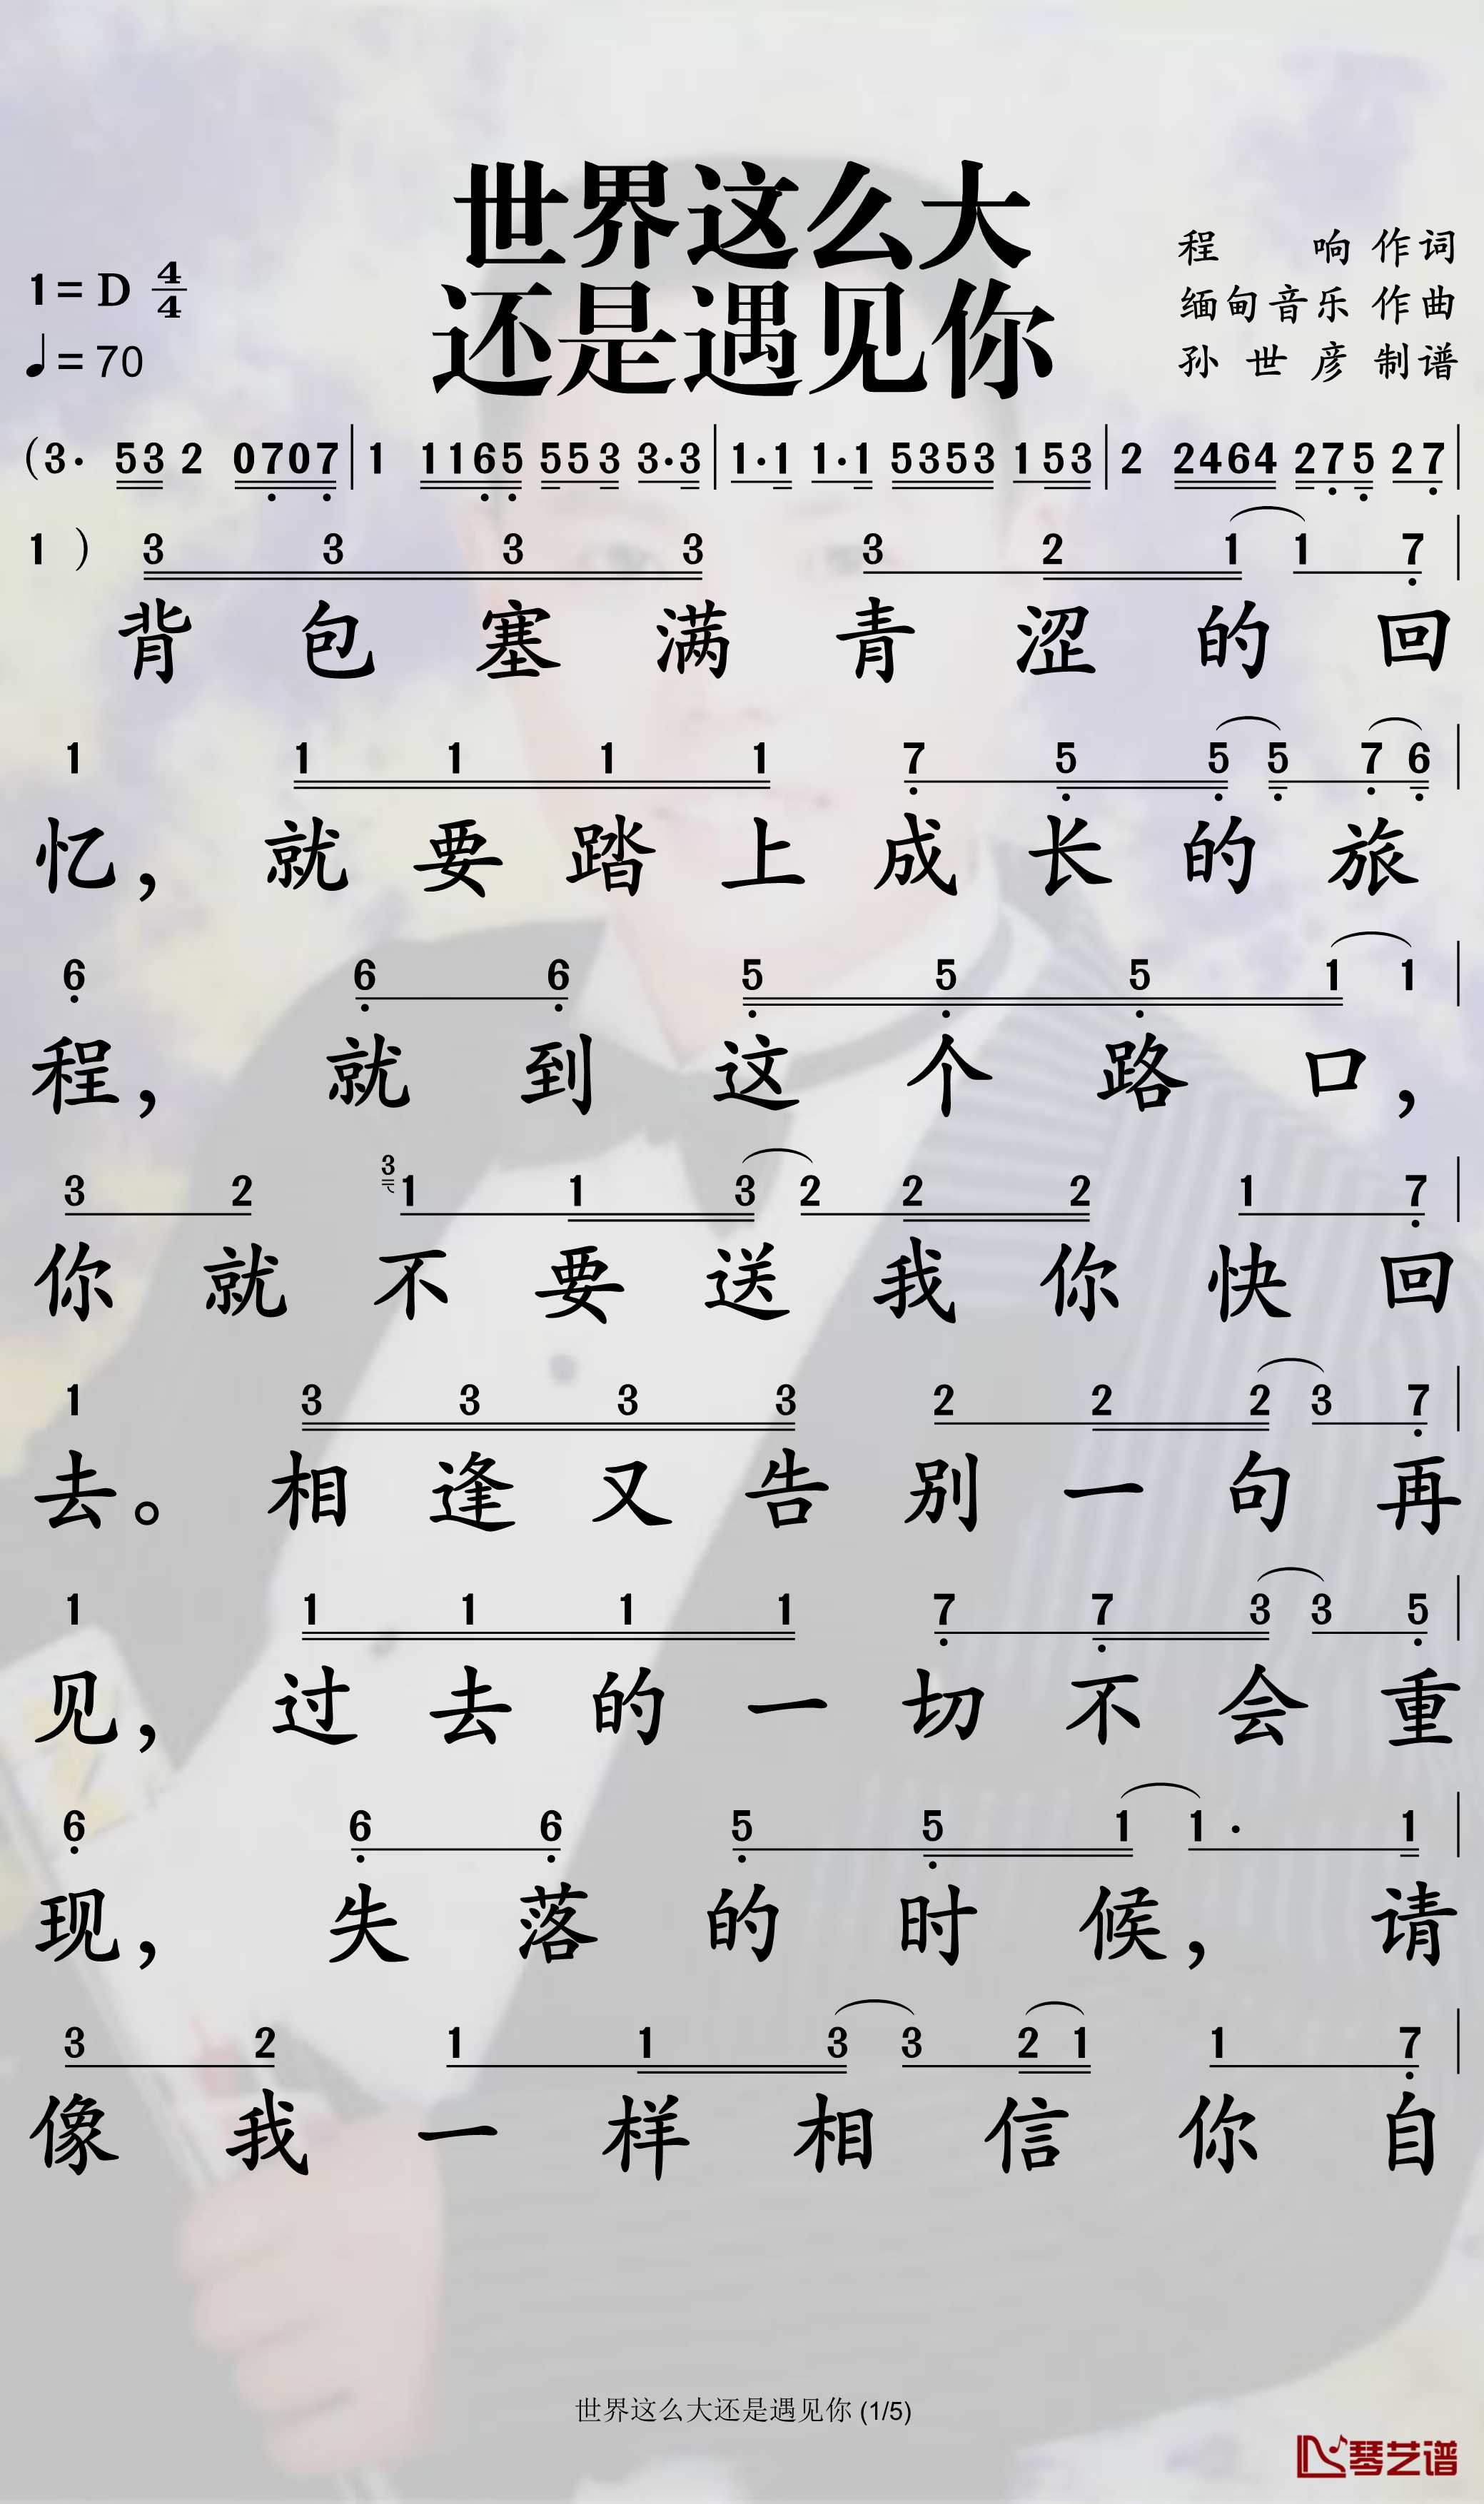 世界这么大
还是遇见你
1=D 4/4
♩=70
程 响 作词
缅甸音乐 作曲
孙世彦 制谱
(3· 53 2 0707 | 1 1165 553 3·3 | 1·1 1·1 5353 153 | 2 2464 275 27 |
1 ) 3 3 3 3 3 2 1 1 7 |
背包塞满青涩的回
1 1 1 1 1 7 5 5 5 7 6 |
忆，就要踏上成长的旅
6 6 6 5 5 5 1 1 |
程，就到这个路口，
3 2 3 1 1 3 2 2 2 1 7 |
你就不要送我你快回
1 3 3 3 3 2 2 2 3 7 |
去。相逢又告别一句再
1 1 1 1 1 7 7 3 3 5 |
见，过去的一切不会重
6 6 6 5 5 1 1· 1 |
现，失落的时候，请
3 2 1 1 3 3 2 1 1 7 |
像我一样相信你自
世界这么大还是遇见你 (1/5)
琴艺谱